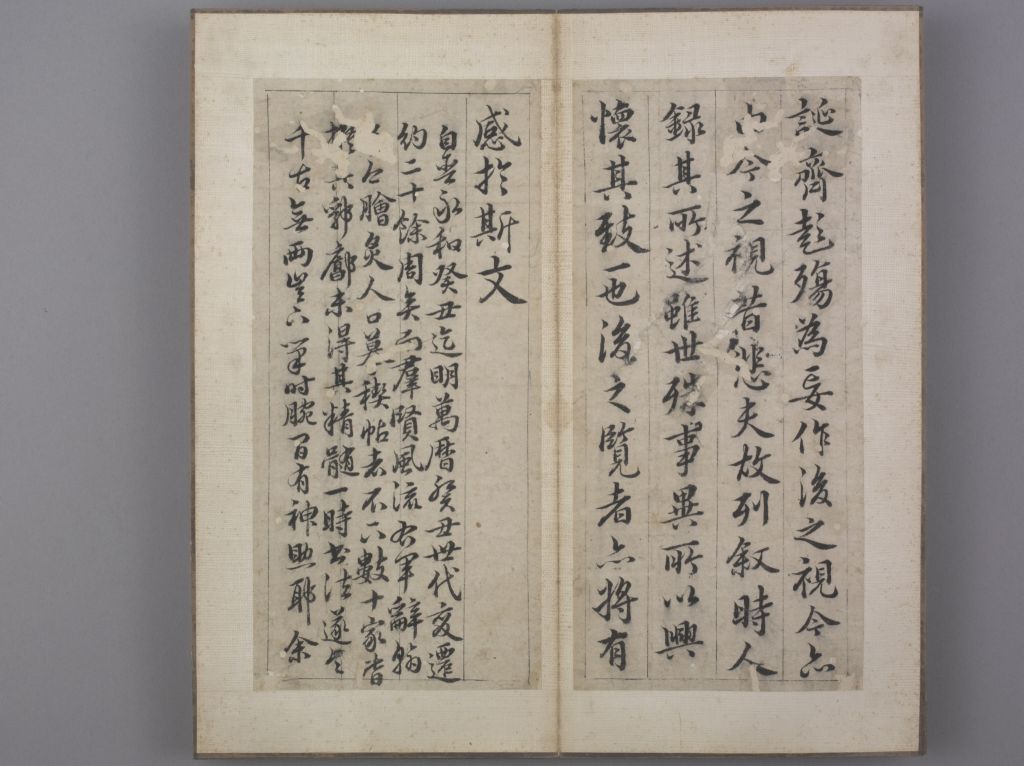 誕齊彭殤為妄作後之視今亦
由今之視昔悲夫故列敘時人
錄其所述雖世殊事異所以興
懷其致一也後之覽者亦將有
感於斯文
自晉永和癸丑迄明萬曆癸丑世代变遷
約二十餘周矣而羣賢風流右軍辭翰
人膾炙人口莫稧帖者不下數十家皆
郭廓未得其精髓一時书法遂令
千古無兩豈下筆时腕間有神助耶余